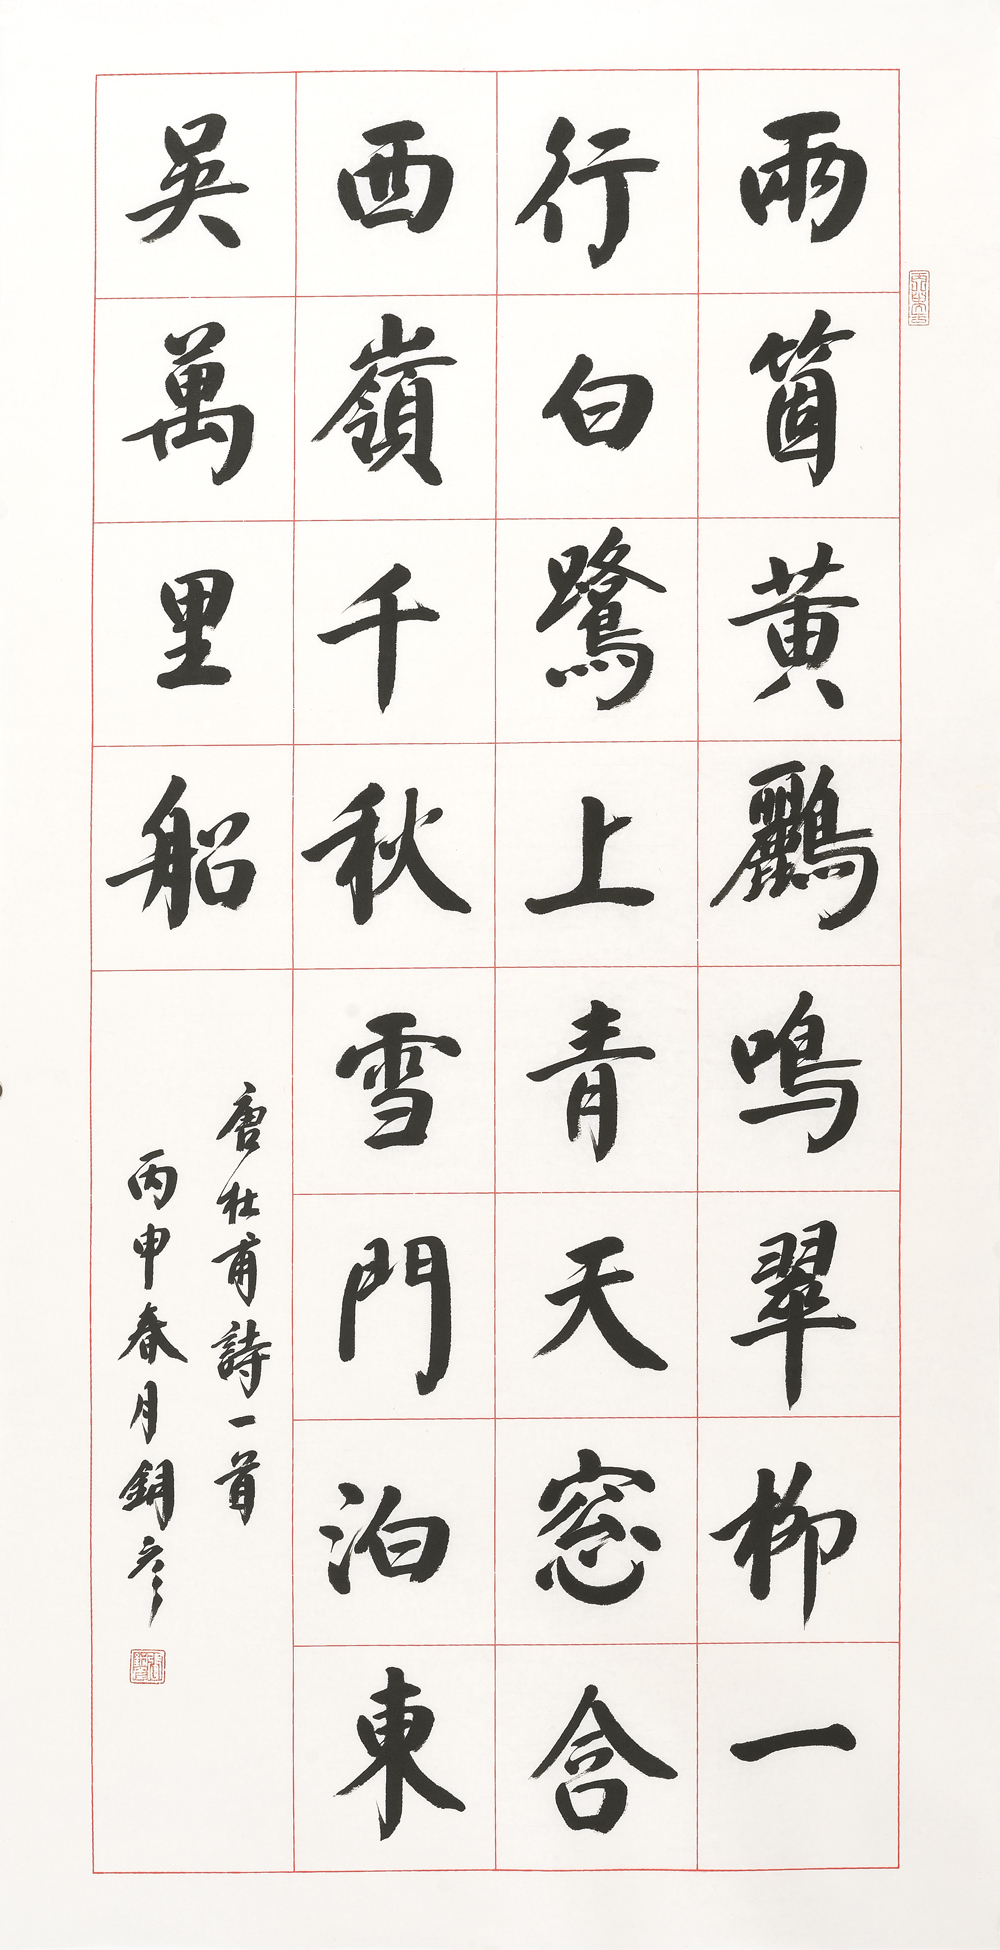 兩箇黃鸝鳴翠柳一
行白鷺上青天窓含
西嶺千秋雪門泊東
吳萬里船
唐杜甫詩一首
丙申春月銅彥